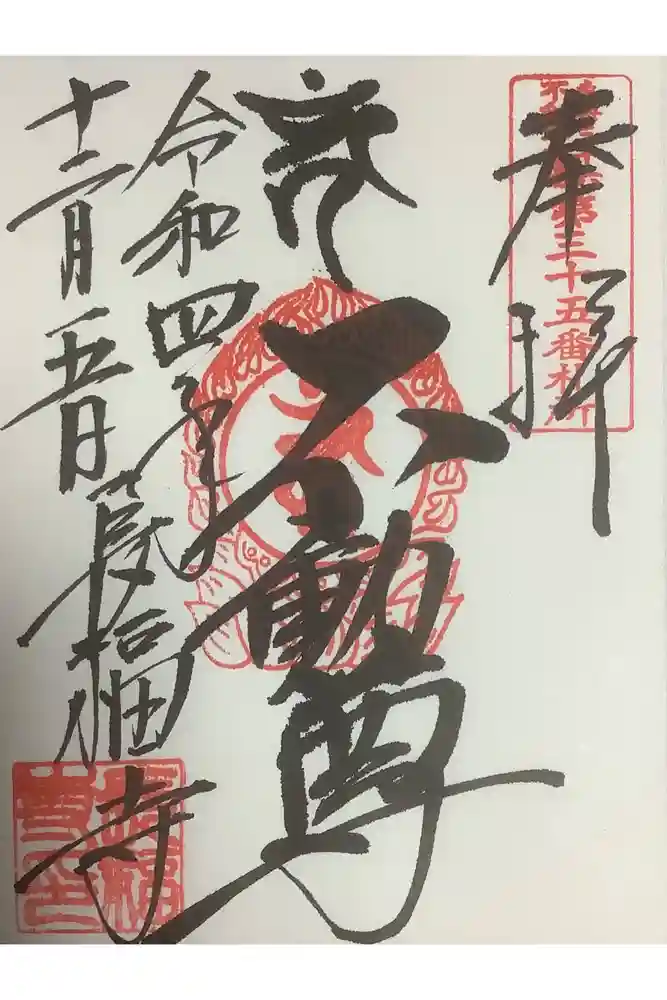 奉拝
第三十五番札所
不動尊
令和四年
十二月五日
長福寺
長福寺印